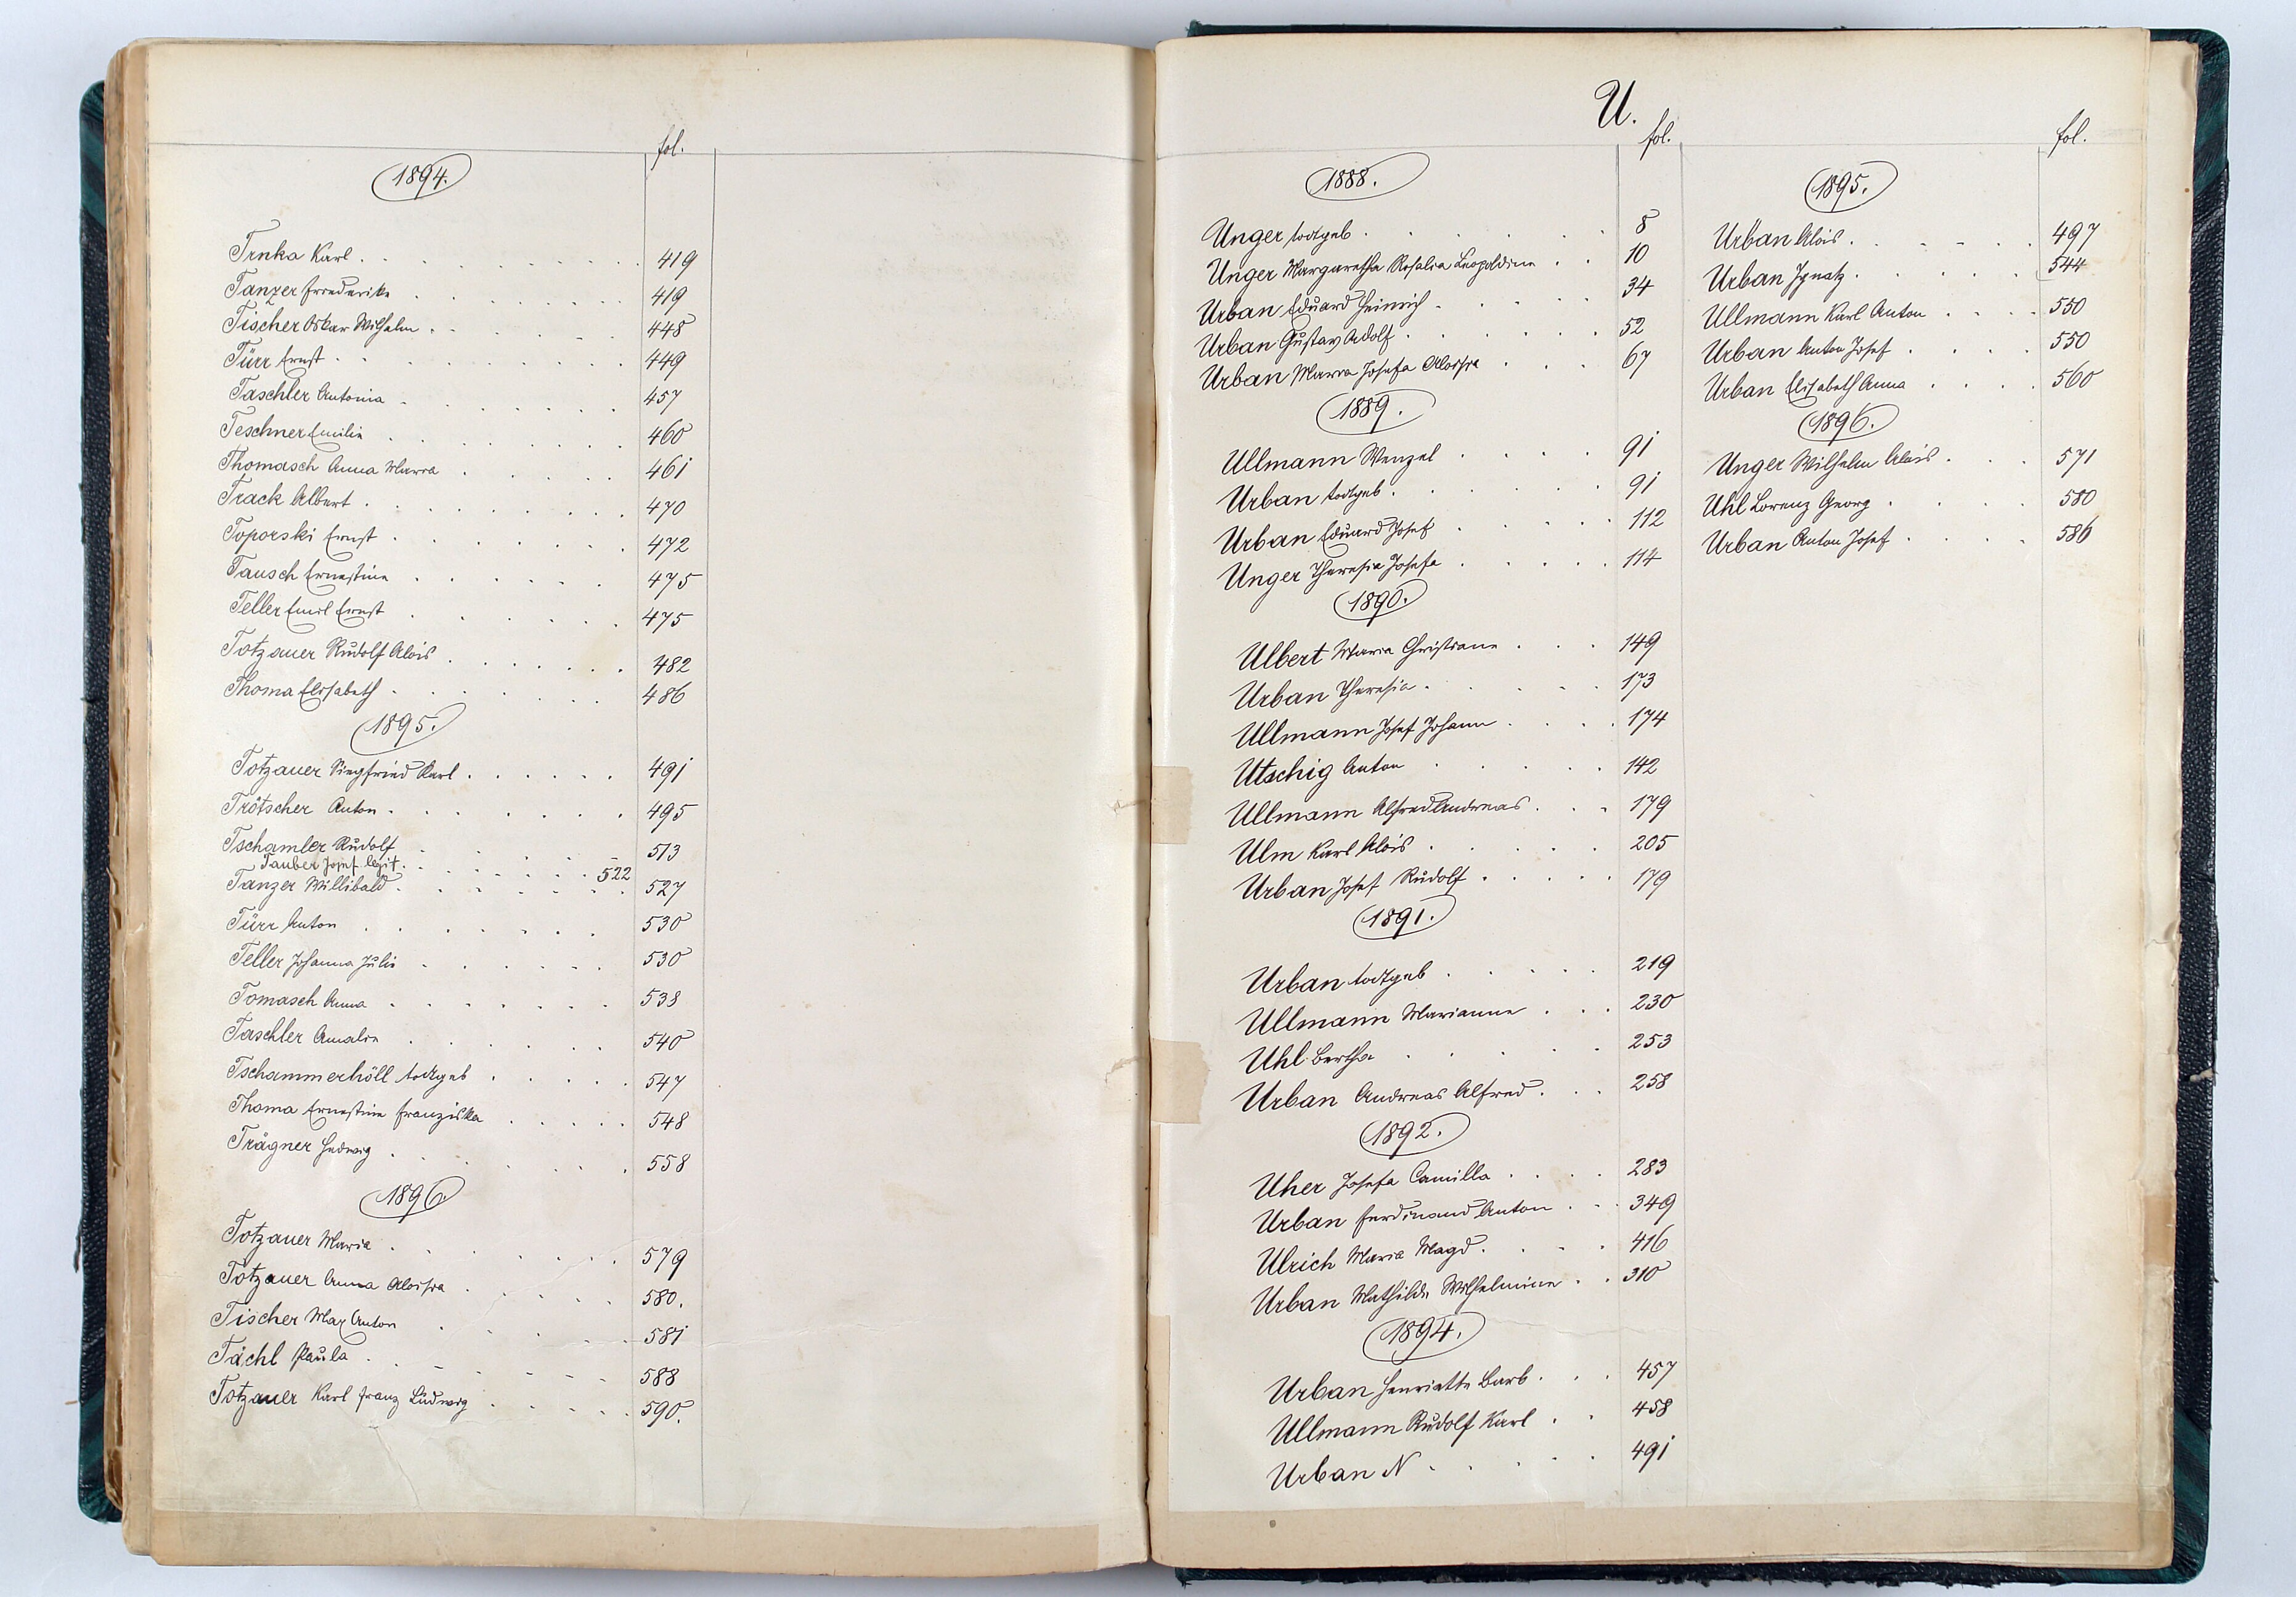 fol.
1894.
Trnka Karl 419
Tanzer Friederike 419
Tischer Oskar Wilhelm 448
Türr Ernst 449
Taschler Antonia 457
Teschner Emilie 460
Thomasch Anna Maria 461
Track Albert 470
Toporski Ernst 472
Tausch Ernestine 475
Teller Emil Ernst 475
Totzauer Rudolf Alois 482
Thoma Elisabeth 486
1895.
Totzauer Siegfried Karl 491
Trötscher Anton 495
Tschamler Rudolf 513
Tauber Josef legit. 522
Tanzer Willibald 527
Türr Anton 530
Teller Johanna Julie 530
Tomasch Anna 538
Taschler Amalie 540
Tschammerhöll todtgeb 547
Thoma Ernestine Franziska 548
Trägner Hedwig 558
1896
Totzauer Maria 579
Totzauer Anna Aloisia 580.
Tischer Max Anton 581
Tächl Paula 588
Totzauer Karl Franz Ludwig 590.
U.
fol.
1888.
Unger todtgeb. 8
Unger Margaretha Rosalia Leopoldine 10
Urban Eduard Heinrich 34
Urban Gustav Adolf 52
Urban Maria Josefa Aloisia 67
1889.
Ullmann Wenzel 91
Urban todtgeb. 91
Urban Eduard Josef 112
Unger Theresia Josefa 114
1890.
Ulbert Maria Christiane 149
Urban Theresia 173
Ullmann Josef Johann 174
Utschig Anton 142
Ullmann Alfred Andreas 179
Ulm Karl Alois 205
Urban Josef Rudolf 179
1891.
Urban todtgeb 219
Ullmann Marianne 230
Uhl Bertha 253
Urban Andreas Alfred 258
1892.
Uher Josefa Camilla 283
Urban Ferdinand Anton 349
Ulrich Maria Magd. 416
Urban Mathilde Wilhelmine 310
1894.
Urban Henriette Barb. 457
Ullmann Rudolf Karl 458
Urban N 491
fol.
1895.
Urban Alois 497
Urban Ignatz 544
Ullmann Karl Anton 550
Urban Anton Josef 550
Urban Elisabeth Anna 560
1896.
Unger Wilhelm Alois 571
Uhl Lorenz Georg 580
Urban Anton Josef 586